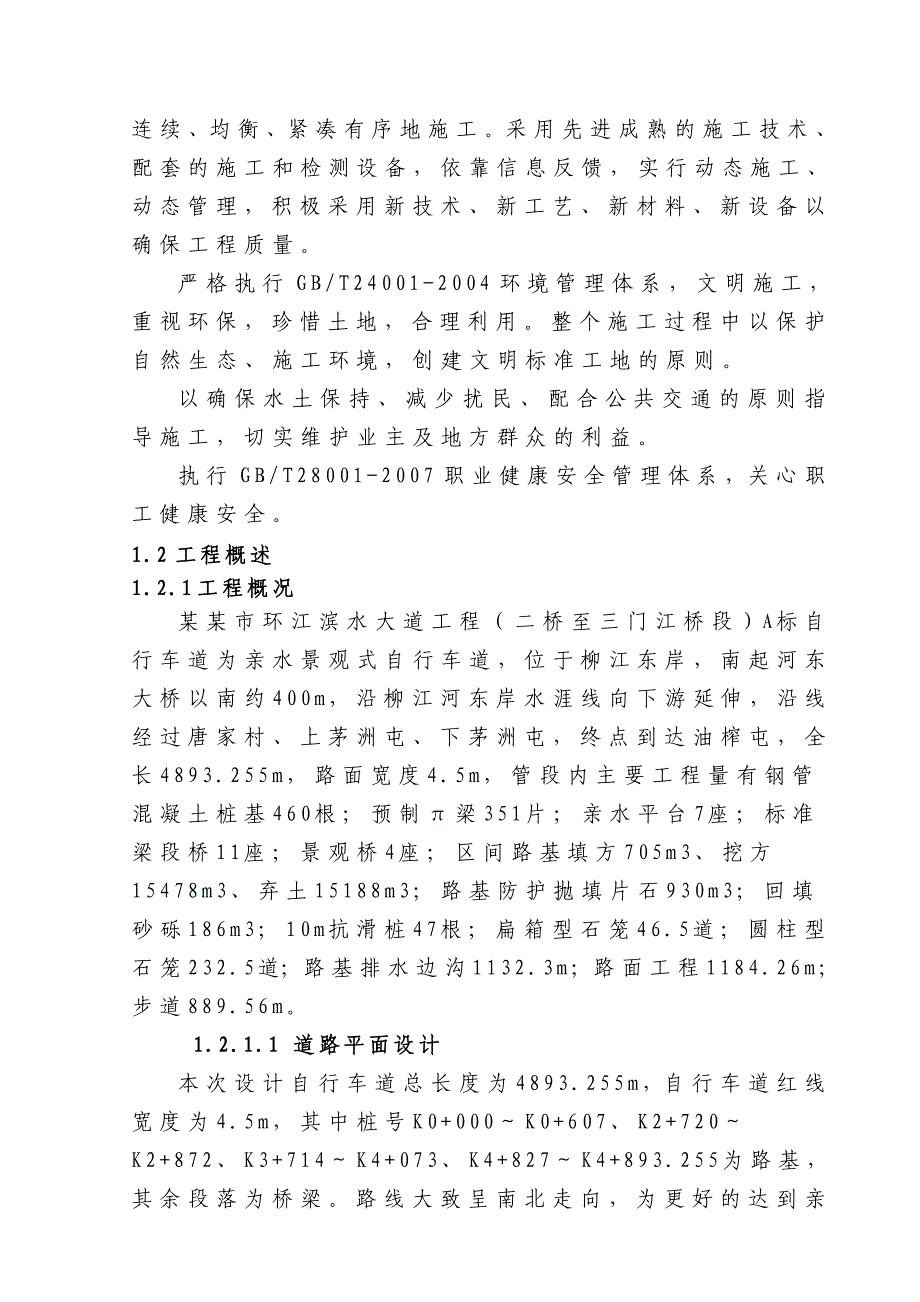 连续、均衡、紧凑有序地施工。采用先进成熟的施工技术、
配套的施工和检测设备，依靠信息反馈，实行动态施工、
动态管理，积极采用新技术、新工艺、新材料、新设备以
确保工程质量。
严格执行GB/T24001-2004环境管理体系，文明施工，
重视环保，珍惜土地，合理利用。整个施工过程中以保护
自然生态、施工环境，创建文明标准工地的原则。
以确保水土保持、减少扰民、配合公共交通的原则指
导施工，切实维护业主及地方群众的利益。
执行GB/T28001-2007职业健康安全管理体系，关心职
工健康安全。
1.2工程概述
1.2.1工程概况
某某市环江滨水大道工程（二桥至三门江桥段）A标自
行车道为亲水景观式自行车道，位于柳江东岸，南起河东
大桥以南约400m，沿柳江河东岸水涯线向下游延伸，沿线
经过唐家村、上茅洲屯、下茅洲屯，终点到达油榨屯，全
长4893.255m，路面宽度4.5m，管段内主要工程量有钢管
混凝土桩基460根；预制π梁351片；亲水平台7座；标准
梁段桥11座；景观桥4座；区间路基填方705m3、挖方
15478m3、弃土15188m3；路基防护抛填片石930m3；回填
砂砾186m3；10m抗滑桩47根；扁箱型石笼46.5道；圆柱型
石笼232.5道；路基排水边沟1132.3m；路面工程1184.26m；
步道889.56m。
1.2.1.1 道路平面设计
本次设计自行车道总长度为4893.255m，自行车道红线
宽度为4.5m，其中桩号K0+000～K0+607、K2+720～
K2+872、K3+714～K4+073、K4+827～K4+893.255为路基，
其余段落为桥梁。路线大致呈南北走向，为更好的达到亲